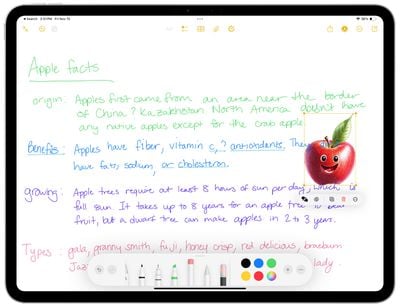 Apple facts
origin: Apples first came from an area near the border
of China ? Kazakhstan. North America doesn't have
any native apples except for the crab apple.
Benefits: Apples have fiber, vitamin c, ? antioxidents. The
have fat, sodium, or cholesterol.
growing: Apple trees require at least 8 hours of sun per day, which is
full sun. It takes up to 8 years for an apple tree
fruit, but a dwarf tree can make apples in 2 to 3 years.
Types: gala, granny smith, fuji, honey crisp, red delicious, braeburn
Jaz lady.